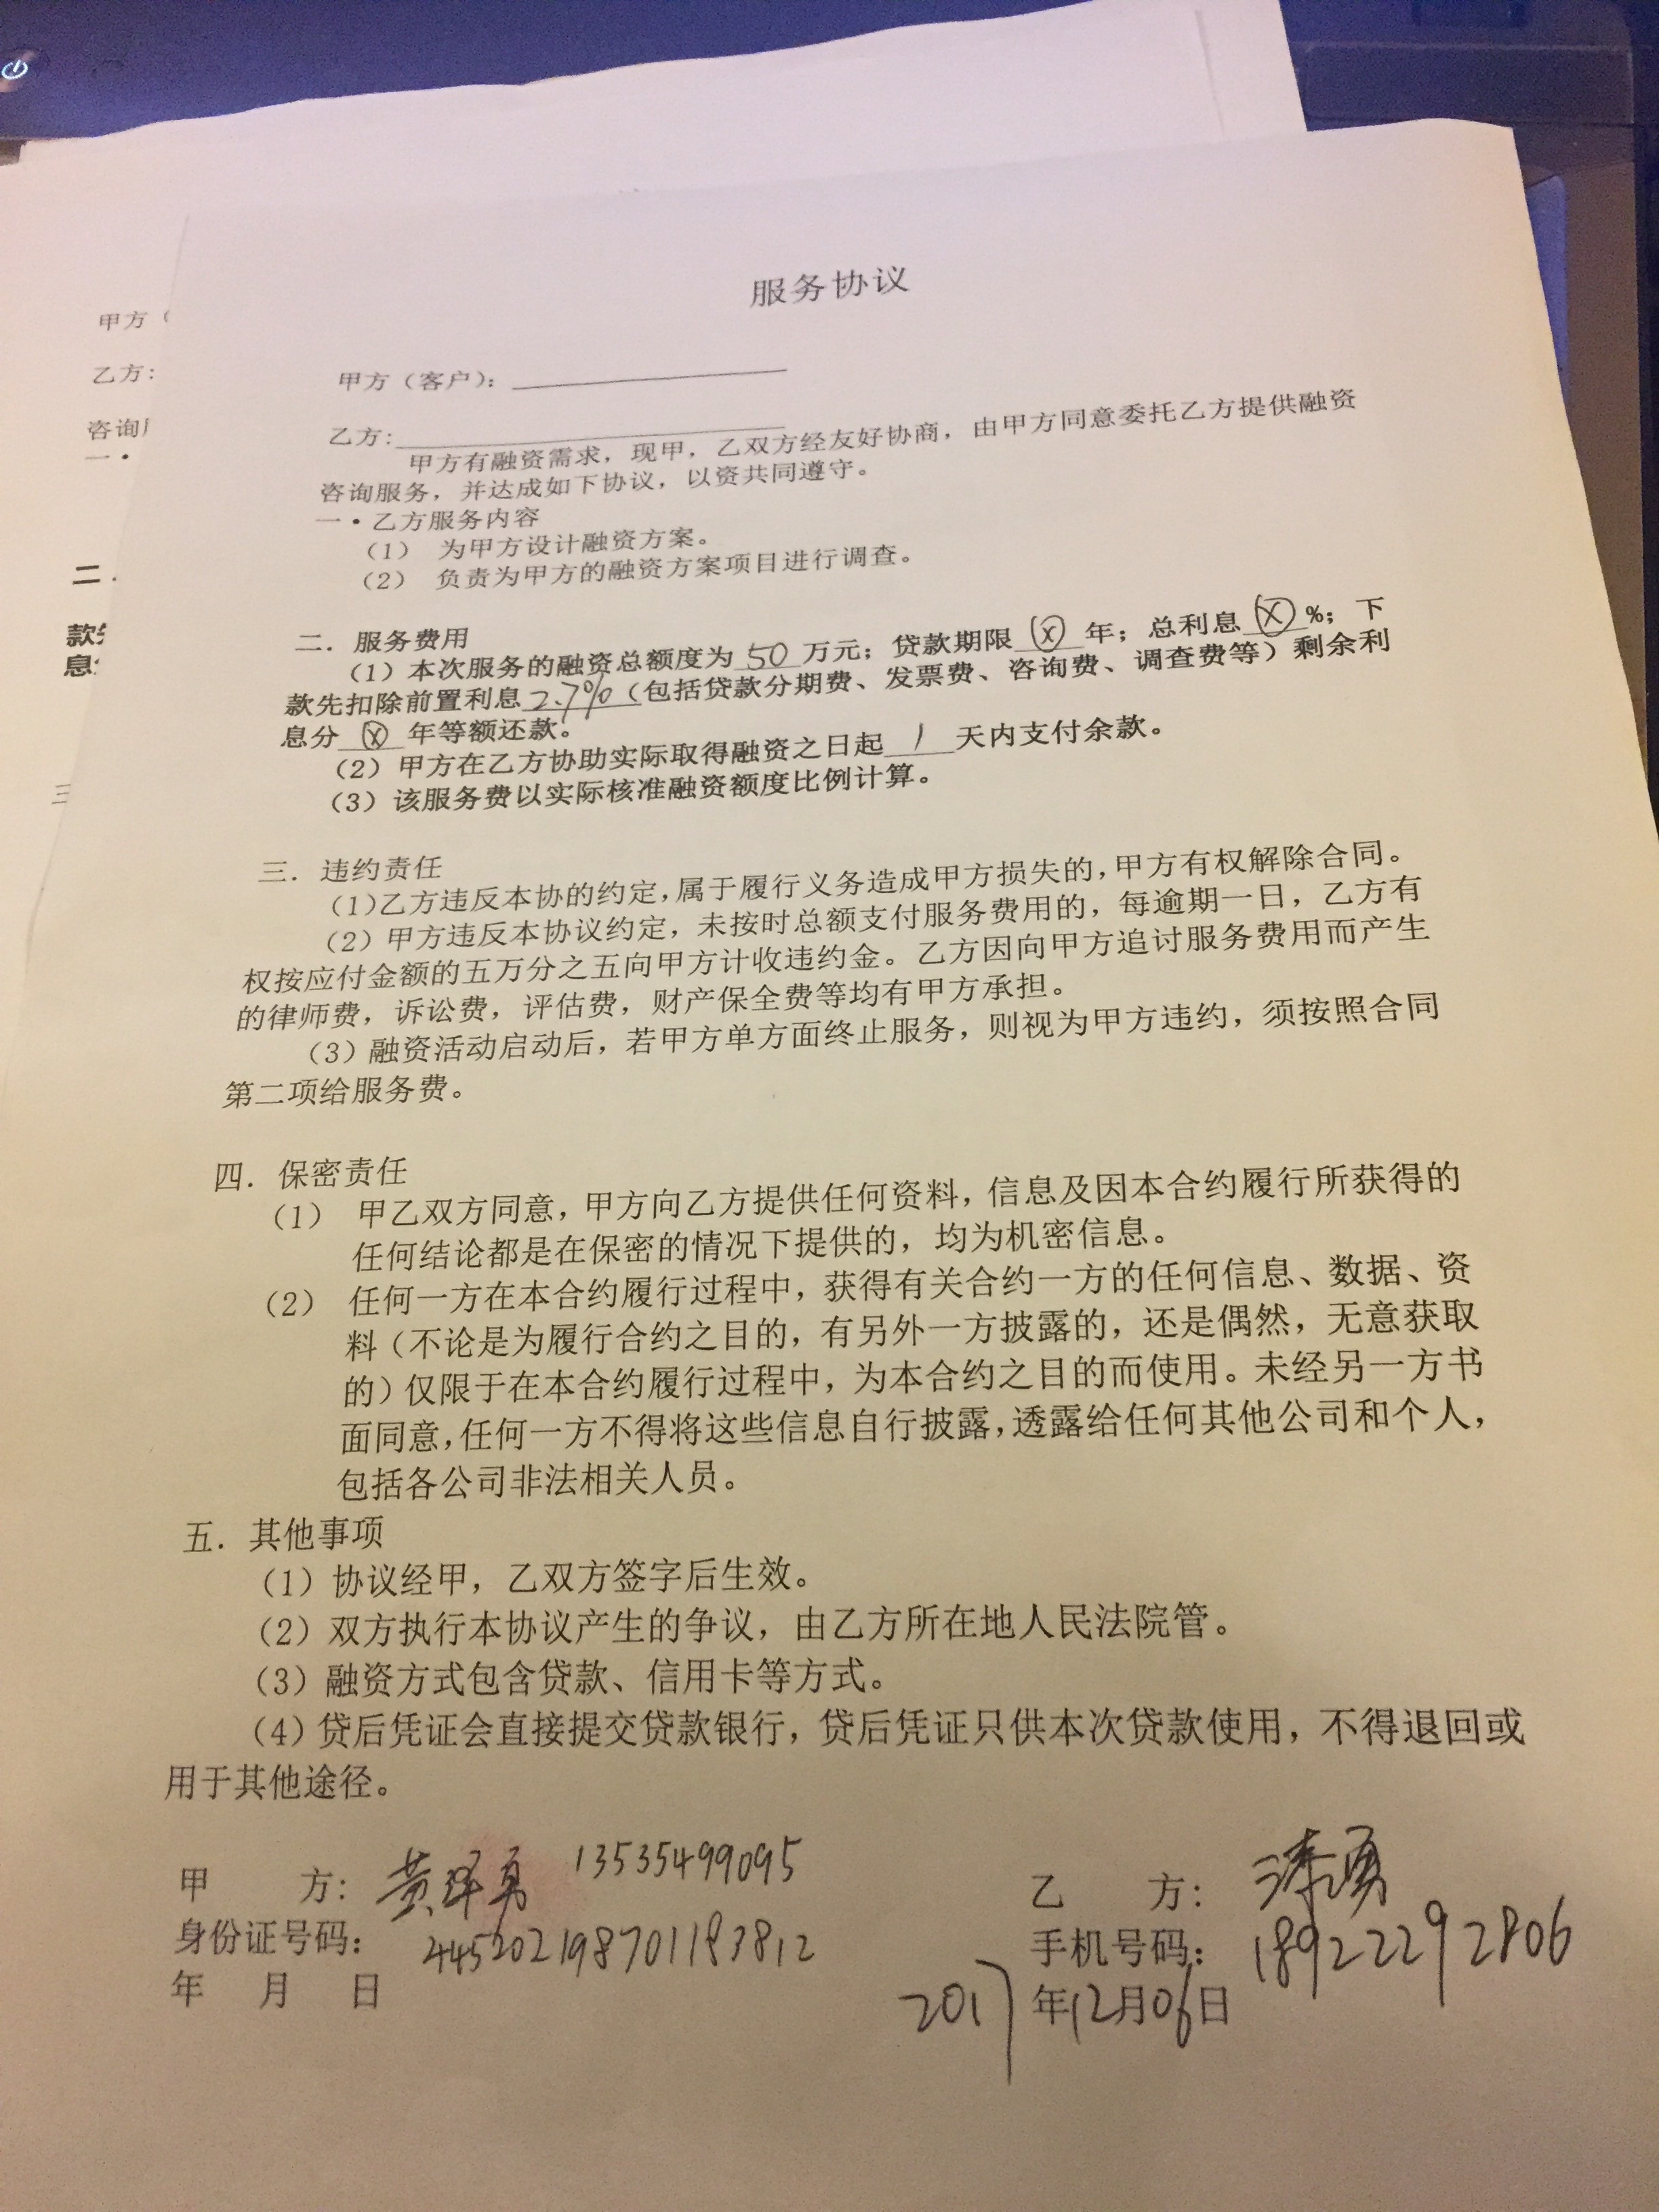 服务协议
甲方（
甲方（客户）：
乙方：
乙方：
甲方有融资需求，现甲，乙双方经友好协商，由甲方同意委托乙方提供融资
咨询服务，并达成如下协议，以资共同遵守。
一·乙方服务内容
（1） 为甲方设计融资方案。
（2） 负责为甲方的融资方案项目进行调查。
二．服务费用
（1）本次服务的融资总额度为 50 万元；贷款期限 ⓧ 年；总利息 ⓧ %；下
款先扣除前置利息 2.7% （包括贷款分期费、发票费、咨询费、调查费等）剩余利
息分 ⓧ 年等额还款。
（2）甲方在乙方协助实际取得融资之日起 1 天内支付余款。
（3）该服务费以实际核准融资额度比例计算。
三．违约责任
（1）乙方违反本协的约定，属于履行义务造成甲方损失的，甲方有权解除合同。
（2）甲方违反本协议约定，未按时总额支付服务费用的，每逾期一日，乙方有
权按应付金额的五万分之五向甲方计收违约金。乙方因向甲方追讨服务费用而产生
的律师费，诉讼费，评估费，财产保全费等均有甲方承担。
（3）融资活动启动后，若甲方单方面终止服务，则视为甲方违约，须按照合同
第二项给服务费。
四．保密责任
（1） 甲乙双方同意，甲方向乙方提供任何资料，信息及因本合约履行所获得的
任何结论都是在保密的情况下提供的，均为机密信息。
（2） 任何一方在本合约履行过程中，获得有关合约一方的任何信息、数据、资
料（不论是为履行合约之目的，有另外一方披露的，还是偶然，无意获取
的）仅限于在本合约履行过程中，为本合约之目的而使用。未经另一方书
面同意，任何一方不得将这些信息自行披露，透露给任何其他公司和个人，
包括各公司非法相关人员。
五．其他事项
（1）协议经甲，乙双方签字后生效。
（2）双方执行本协议产生的争议，由乙方所在地人民法院管。
（3）融资方式包含贷款、信用卡等方式。
（4）贷后凭证会直接提交贷款银行，贷后凭证只供本次贷款使用，不得退回或
用于其他途径。
甲 方： 黄泽勇 13535499095
身份证号码： 445202198701183812
年 月 日
乙 方： 漆勇
手机号码： 18922292806
2017年12月06日